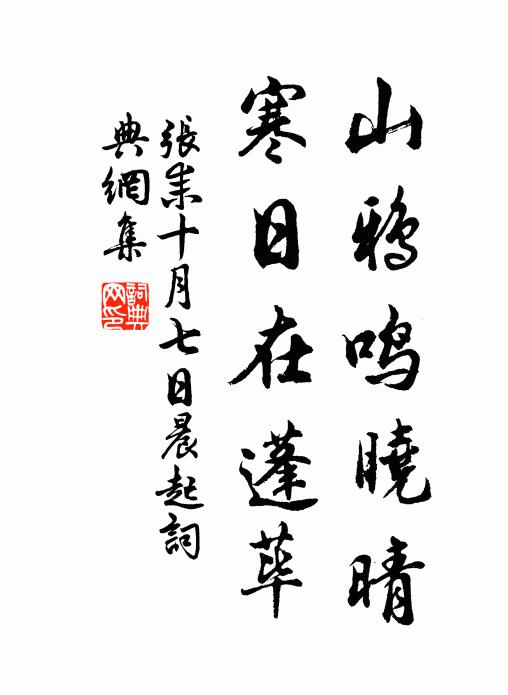 山鴉鳴曉晴
寒日在蓬蓽
張耒十月七日晨起詞
典網集
詞典
网印